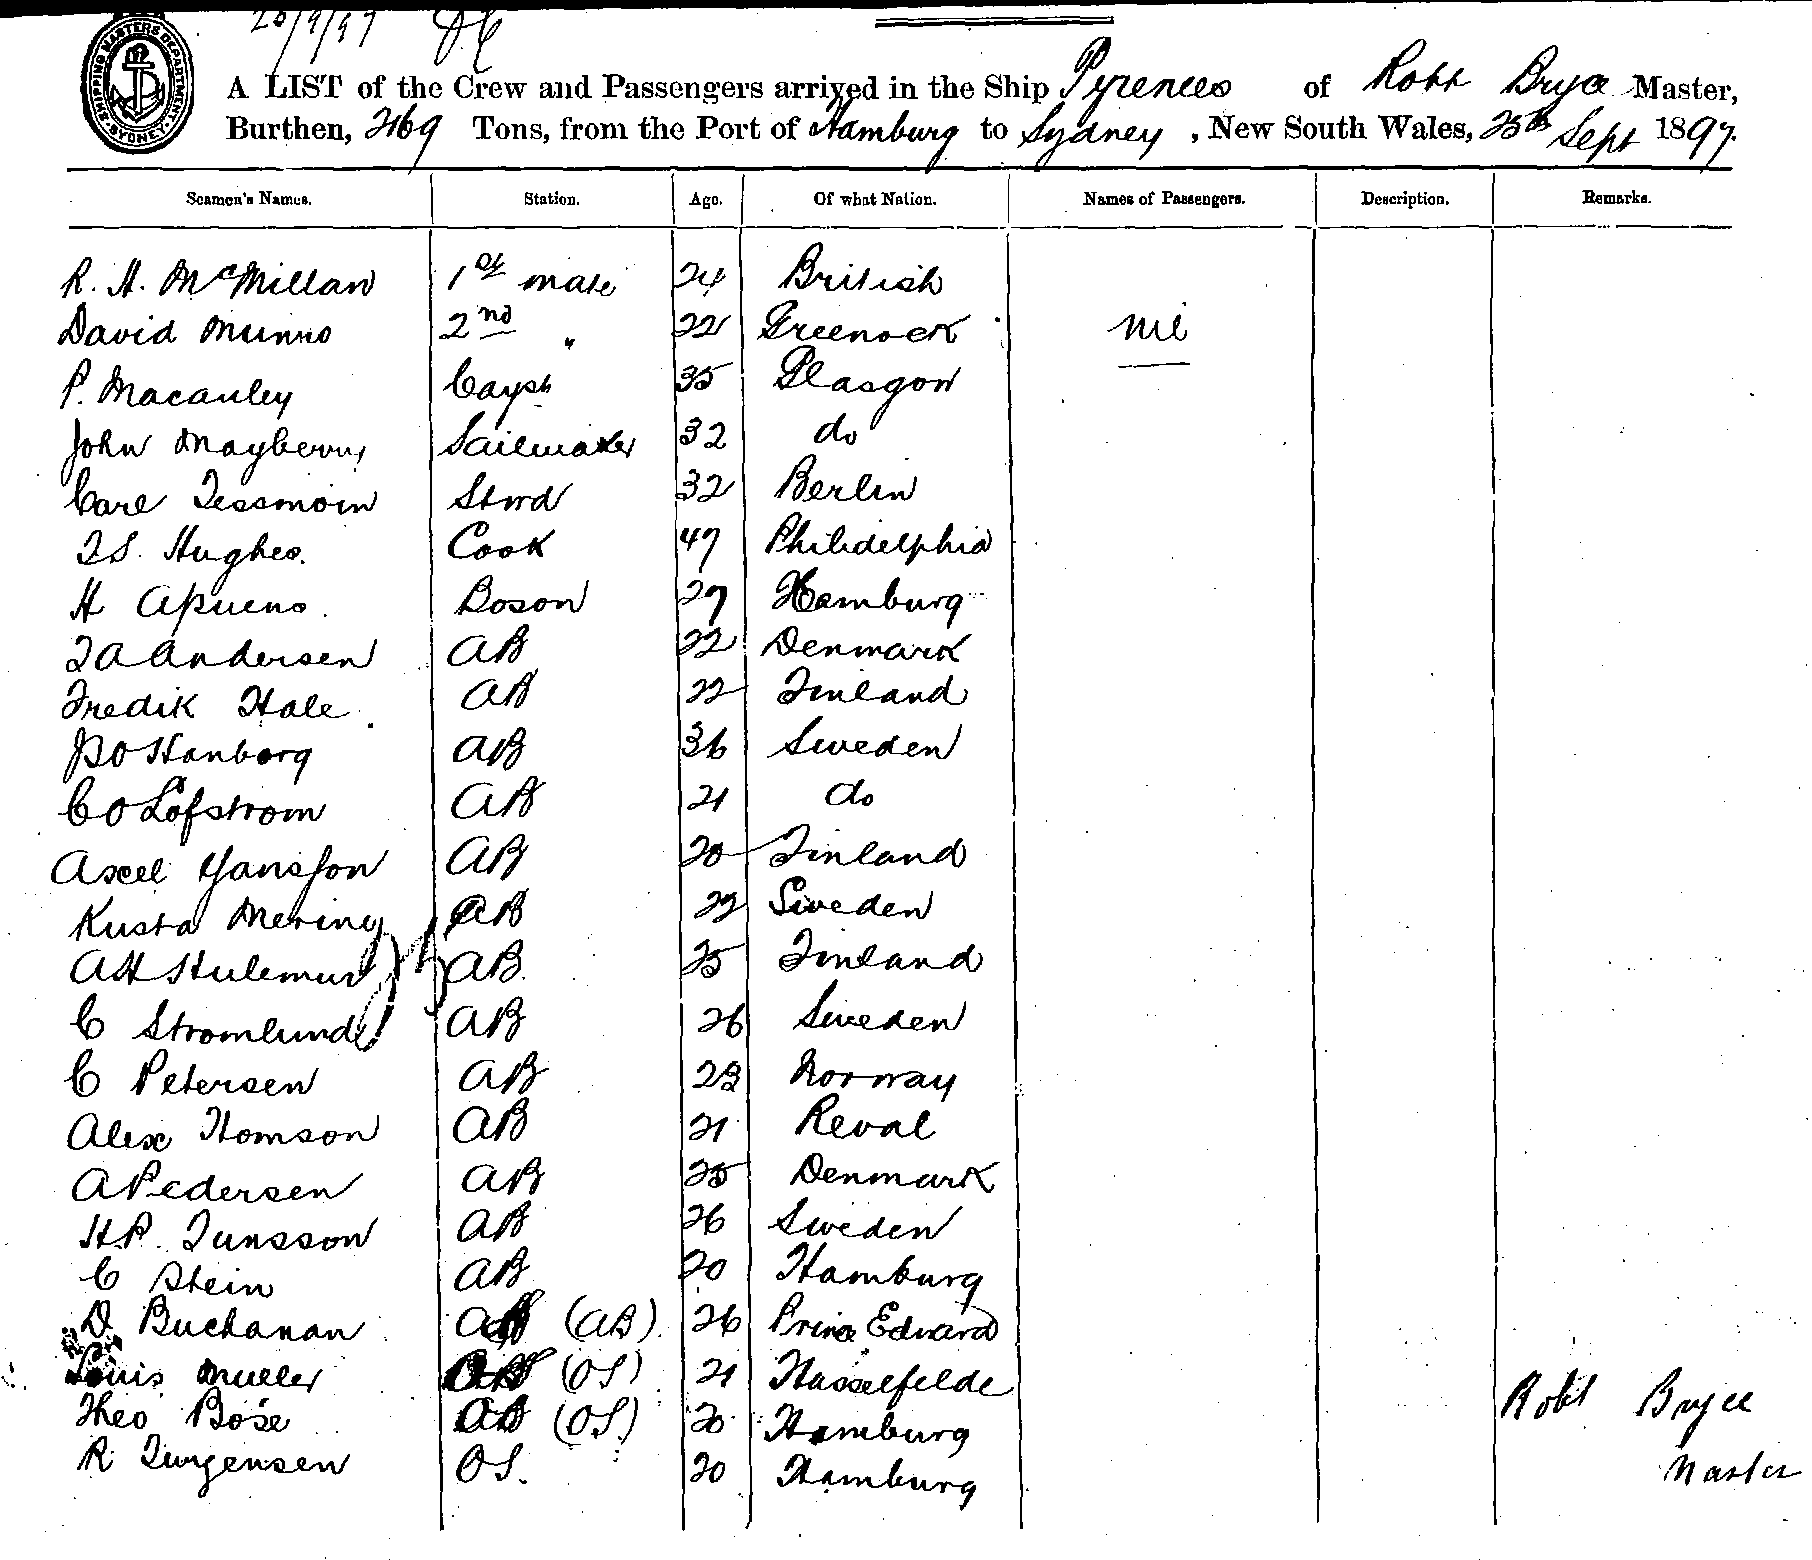 25/9/97
SHIPPING MASTERS DEPARTMENT SYDNEY
A LIST of the Crew and Passengers arrived in the Ship Pyrenees of Robt Bryce Master,
Burthen, 2169 Tons, from the Port of Hamburg to Sydney, New South Wales, 25th Sept 1897.
Seamen's Names. Station. Age. Of what Nation. Names of Passengers. Description. Remarks.
R. H. McMillan 1st mate 24 British
David Munro 2nd " 22 Greenock nil
P. Macauley 35 Glasgow
John Mayberry Sailmaker 32 do
Carl Stwd 32 Berlin
Hughes. Cook 47 Philidelphia
H Boson 27 Hamburg
Andersen AB 22 Denmark
Fredik Hale AB 22 Finland
Hanborg AB 36 Sweden
C O Lofstrom AB 21 do
Axel Jansson AB 20 Finland
Kusta Mering AB 22 Sweden
AB 25 Finland
C Stromlund AB 26 Sweden
C Petersen AB 23 Norway
Alex Homson AB 21 Reval
A Pedersen AB 25 Denmark
H.P. Junsson AB 26 Sweden
C Stein AB 20 Hamburg
D Buchanan AB (AB) 26 Prince Edward
Louis Muller (OS) 21 Hasselfelde
Theo Bose AB (OS) 20 Hamburg Robt Bryce
R Jurgensen OS. 20 Hamburg Master